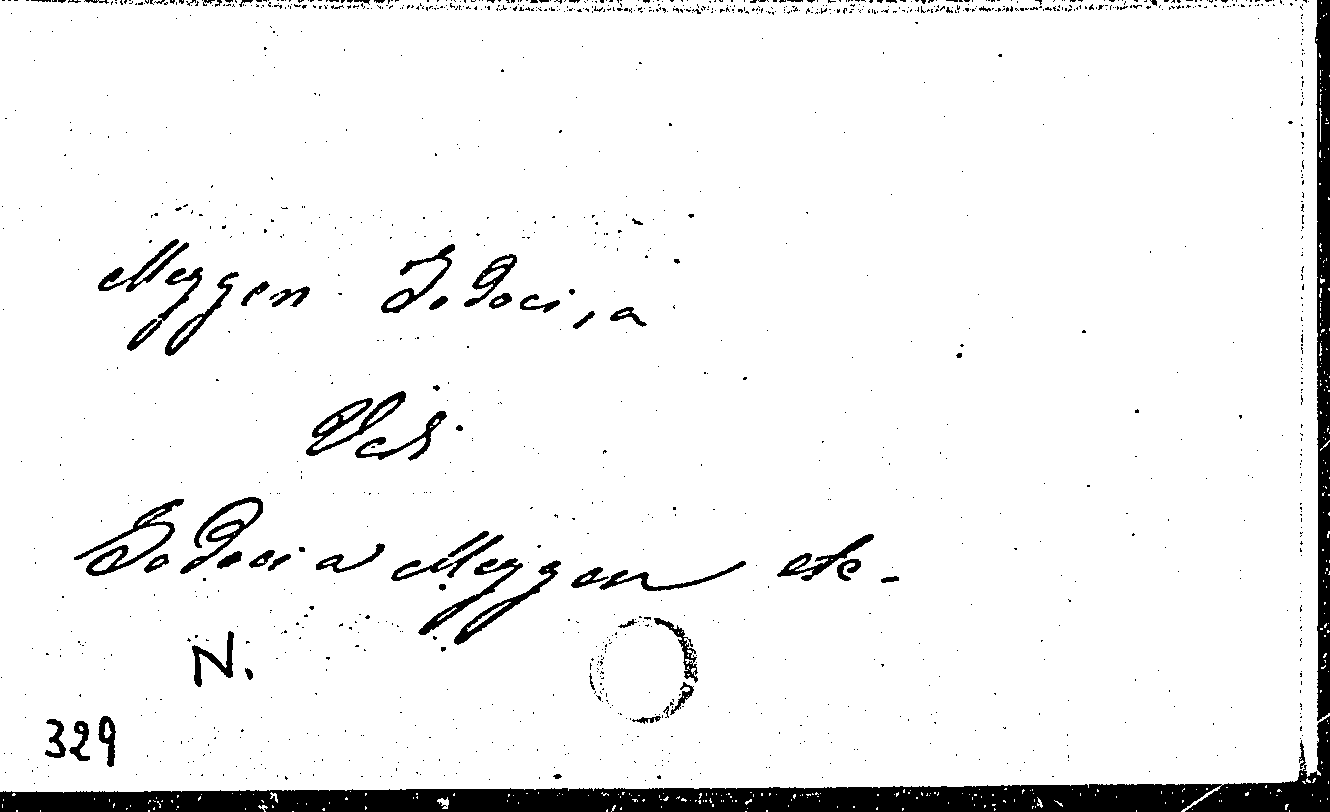 Meggen Jodoci, a
Vide
Jodoci a Meggen etc.
N.
329